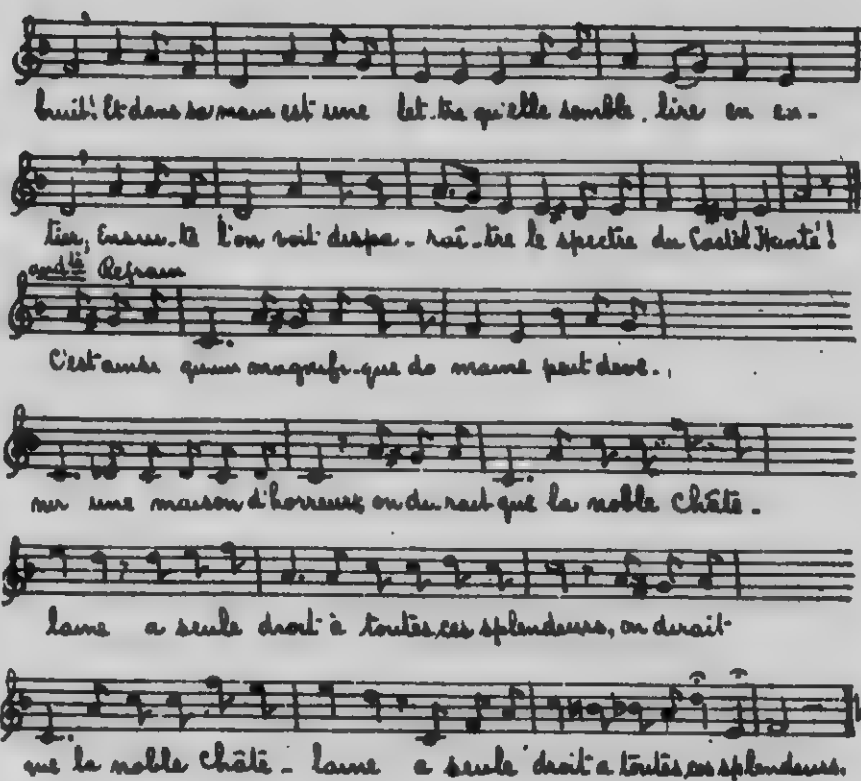 bruit! Et dans sa main est une let-tre qu'elle semble. lire en en-
tier, Ensui-te l'on voit dispa-raî-tre le spectre du Castel Hanté!
Refrain
C'est ainsi qu'un magnifi-que do maine peut deve-
nir une maison d'horreur, on di-rait que la noble Châte-
laine a seule droit à toutes ces splendeurs, on dirait
que la noble Châte-laine a seule droit a toutes ces splendeurs.